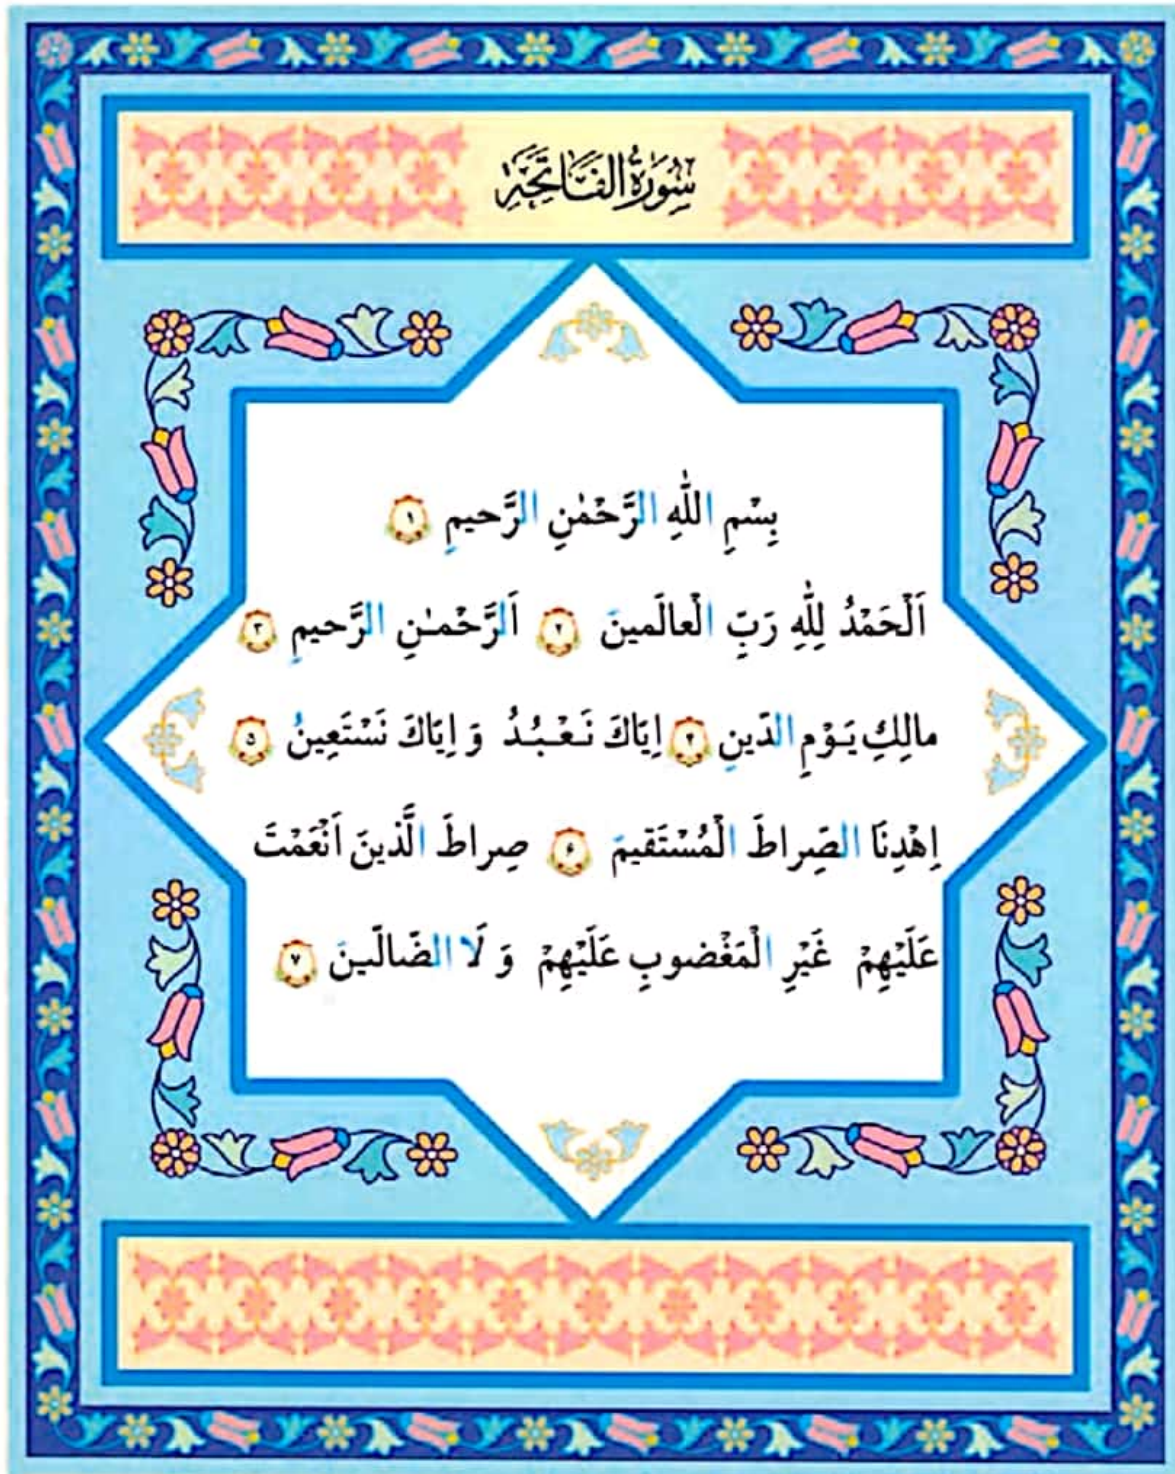 سُورَةُ الفَاتِحَةِ
بِسْمِ اللّٰهِ الرَّحْمٰنِ الرَّحيمِ ۱
اَلْحَمْدُ لِلّٰهِ رَبِّ الْعالَمينَ ۲ اَلرَّحْمـٰنِ الرَّحيمِ ۳
مالِكِ يَـوْمِ الدّينِ ۴ اِيّاكَ نَـعْـبُـدُ وَ اِيّاكَ نَسْتَعِينُ ۵
اِهْدِنَا الصِّراطَ الْمُسْتَقيمَ ۶ صِراطَ الَّذينَ اَنْعَمْتَ
عَلَيْهِمْ غَيْرِ الْمَغْضوبِ عَلَيْهِمْ وَ لَا الضّالّينَ ۷